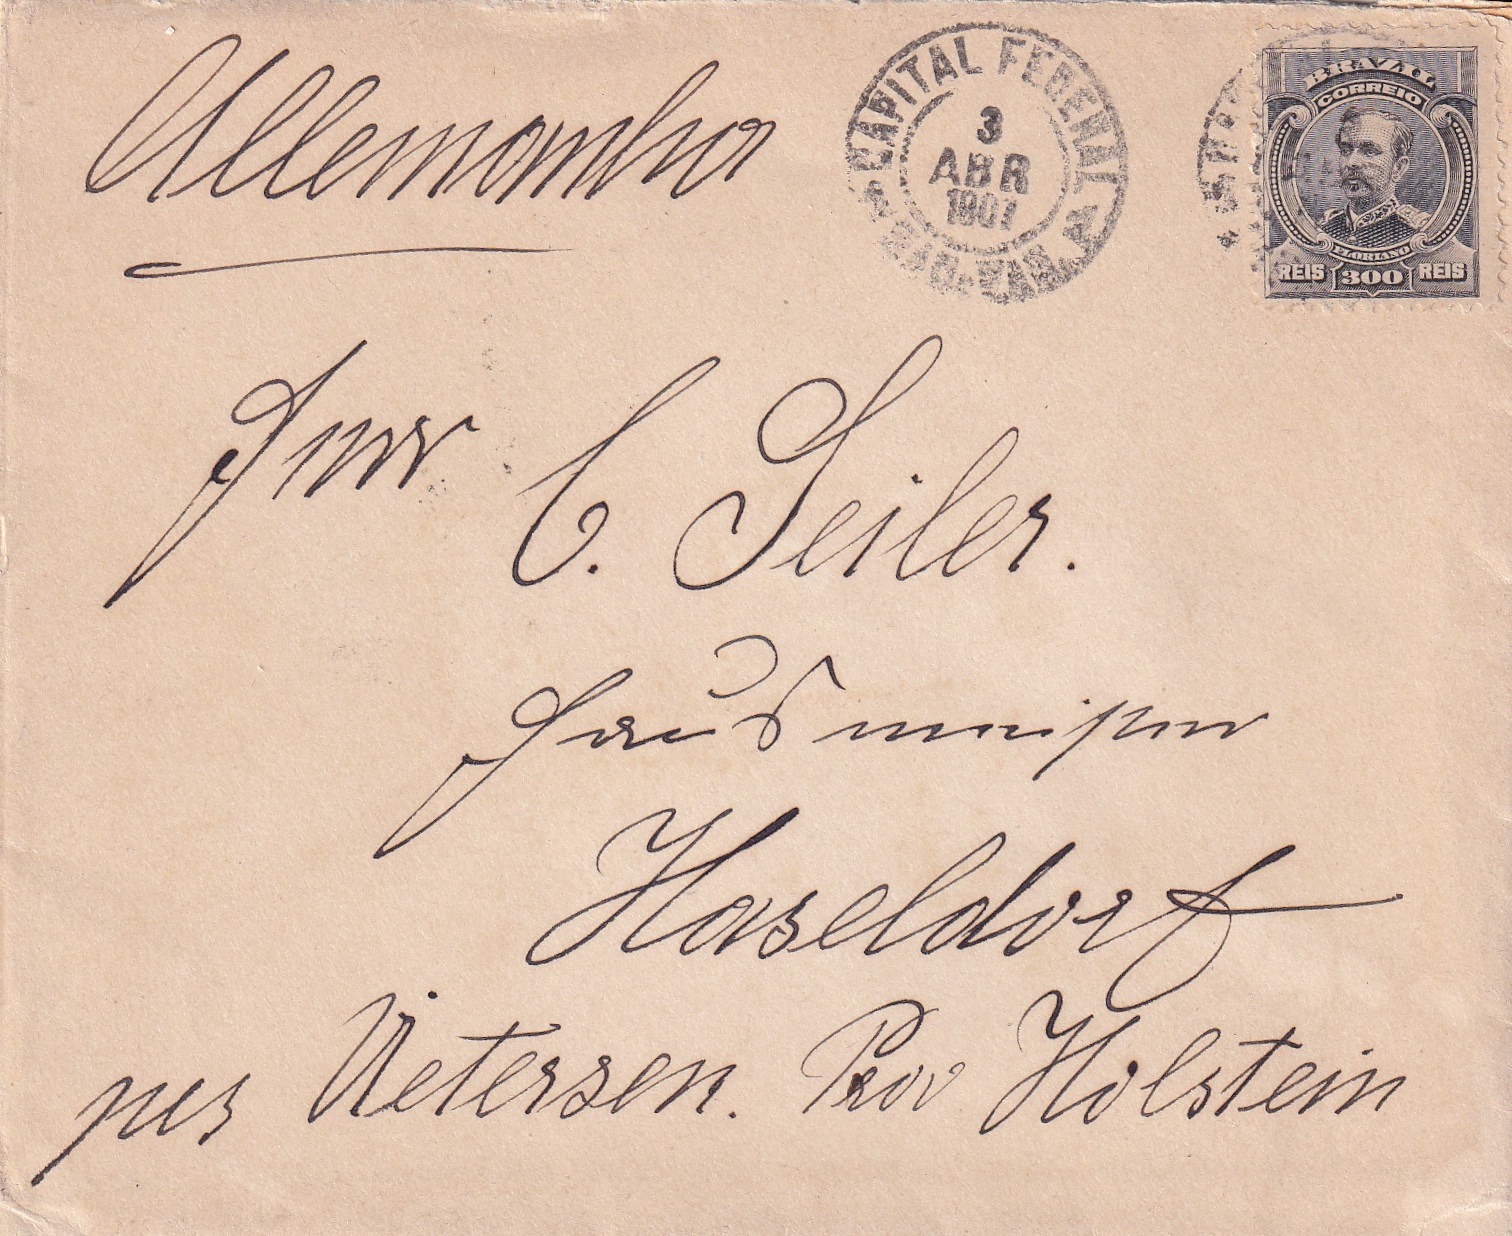 Allemanha
CAPITAL FEDERAL
3
ABR
1907
BRAZIL
CORREIO
FLORIANO
REIS 300 REIS
Herr C. Seiler.
Hausmeister
Haseldorf
per Uetersen. Prov Holstein